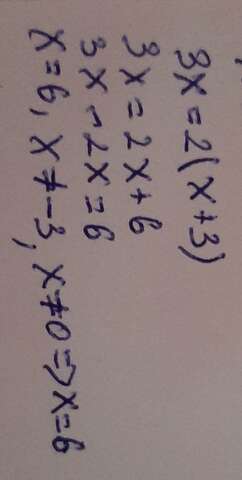 3x = 2(x+3)
3x = 2x+6
3x - 2x = 6
x = 6, x ≠ -3, x ≠ 0 => x = 6